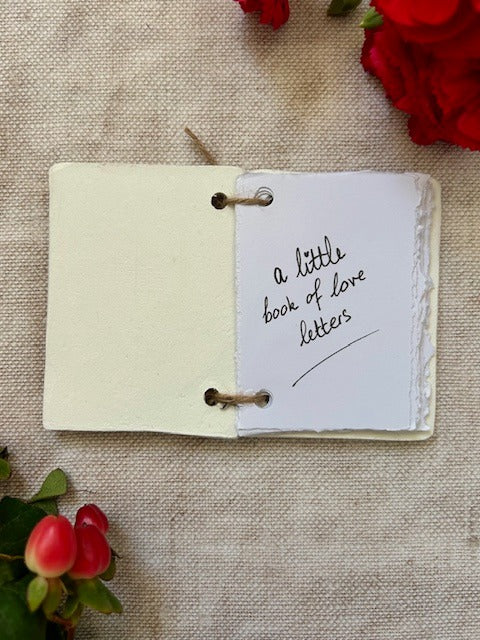 a little
book of love
letters